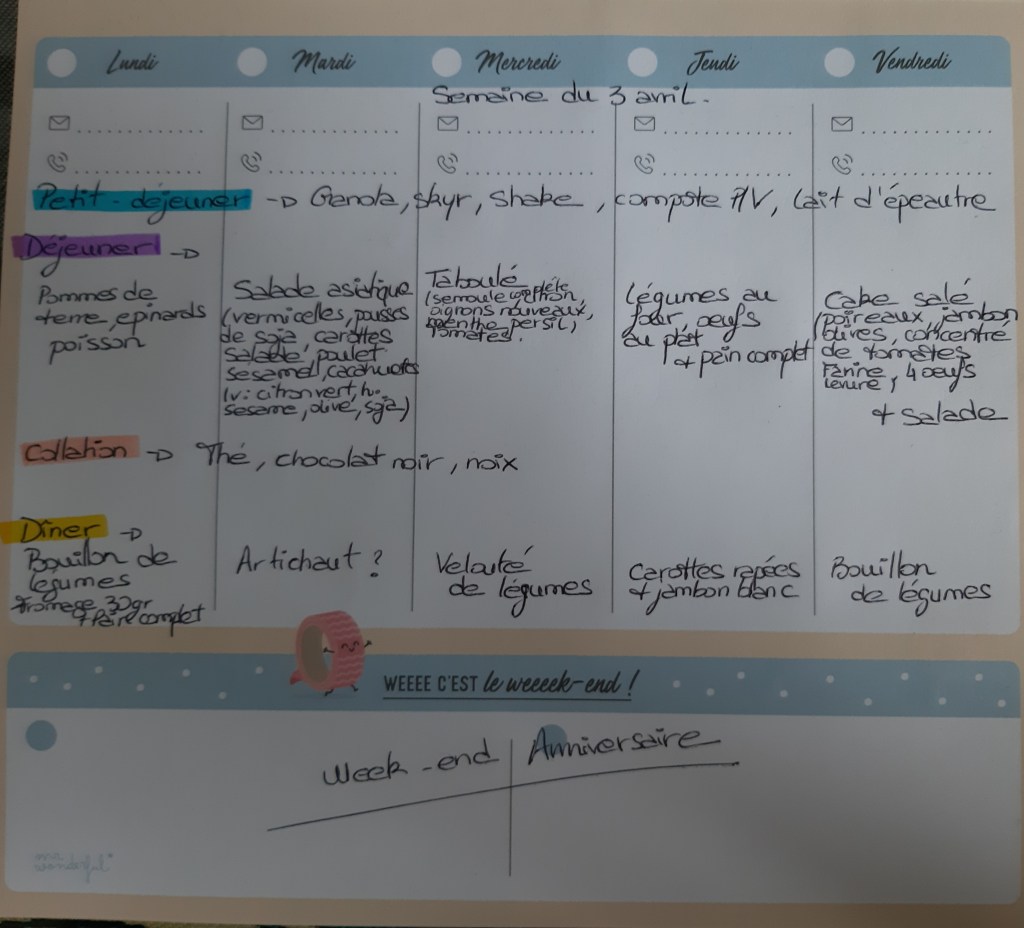 Lundi Mardi Mercredi Jeudi Vendredi
Semaine du 3 avril.
Petit-déjeuner -> Granola, skyr, shake, compote P/V, lait d'épeautre
Déjeuner ->
Pommes de
terre, epinards
poisson
Salade asiatique
(vermicelles, pousses
de soja, carottes
salade, poulet
sesame, cacahuetes
(v: citron vert, h.
sesame, olive, soja)
Taboulé
(semoule complète, citron,
oignons nouveaux,
menthe, persil,
tomates.
Légumes au
four, oeufs
au plat
+ pain complet
Cake salé
(poireaux, jambon
olives, concentré
de tomates
Farine, 4 oeufs
levure,
+ Salade
Collation -> Thé, chocolat noir, noix
Dîner ->
Bouillon de
légumes
fromage 30gr
+ Pain complet
Artichaut ?
Velouté
de légumes
Carottes rapées
+ jambon blanc
Bouillon
de légumes
WEEEE C'EST le weeeek-end !
Week-end Anniversaire
wonderful